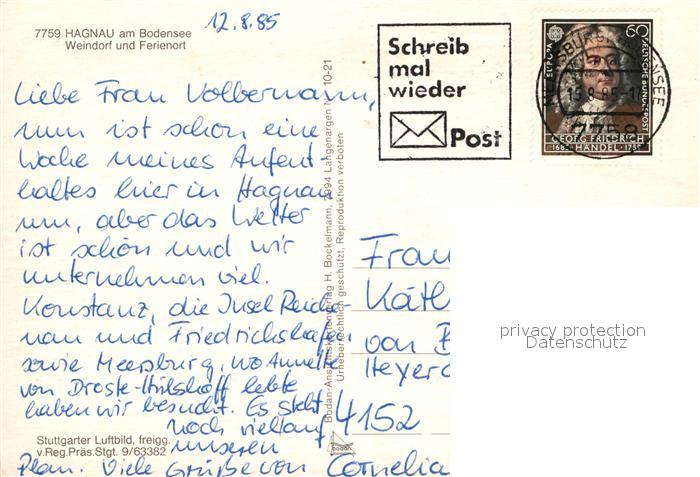 12.8.85
7759 HAGNAU am Bodensee
Weindorf und Ferienort
Liebe Frau Volbermann,
nun ist schon eine
Woche meines Aufent-
haltes hier in Hagnau
um, aber das Wetter
ist schön und wir
unternehmen viel.
Konstanz, die Insel Reiche-
nau und Friedrichshafen
sowie Meersburg, wo Annette
von Droste-Hülshoff lebte
haben wir besucht. Es steht
noch viel auf
unseren
Plan. Viele Grüße von Cornelia
Stuttgarter Luftbild, freigg.
v.Reg.Präs.Stgt. 9/63382
Bodan-Ansichtskartenverlag H. Bockelmann, 7994 Langenargen 10-21
Urheberrechtlich geschützt, Reproduktion verboten
BODAN
Schreib
mal
wieder
Post
EUROPA
60
DEUTSCHE BUNDESPOST
GEORG FRIEDRICH
1685 HÄNDEL 1759
15.8.85
7758
Frau
Käth
von B
Heyer
4152
privacy protection
Datenschutz